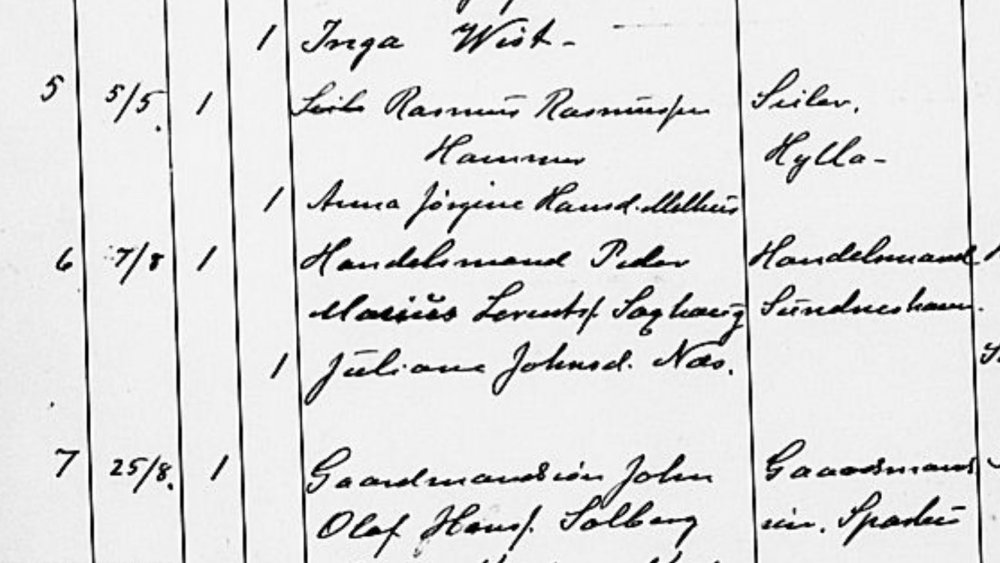 1 Inga Wist -
5 5/5. 1 Rasmus Rasmuss/en Seiler.
Hammer Hylla-
1 Anna Jørgine Hansd. Melhus
6 7/8 1 Handelsmand Peder Handelsmand
Marius Lorents/. Saghaug Sundneshavn.
1 Juliane Johnsd. Næs.
7 25/8. 1 Gaardmandsøn John Gaardmand
Olaf Hans/. Solberg